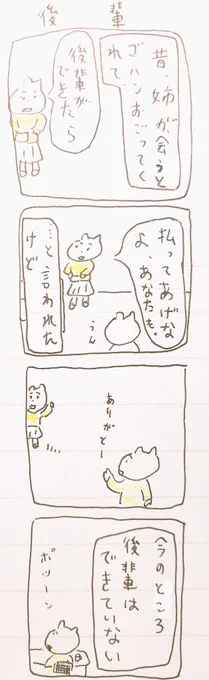 後輩
昔、姉が会うと
ゴハンおごってく
れて、
後輩が
できたら
払ってあげな
よ、あなたも。
うん
…と言われた
けど
ありがとー
今のところ
後輩は
できていない
ポツーン